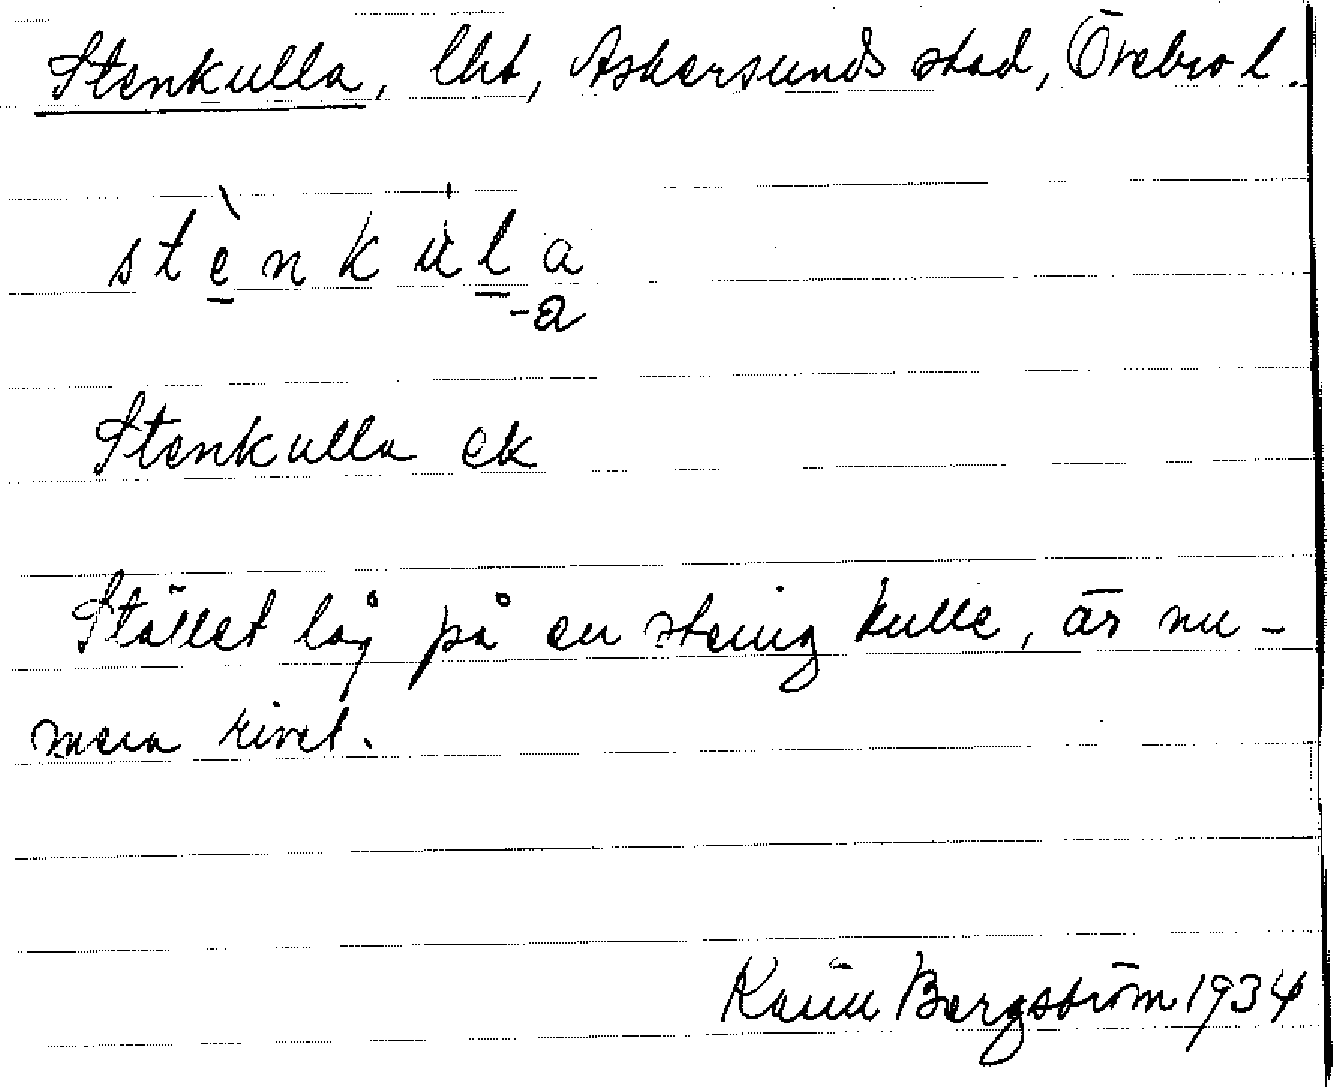 Stenkulla, lht, Askersunds stad, Örebro l.
stènkúla
-a
Stenkulla ek
Stället låg på en stenig kulle, är nu-
mera rivet.
Karin Bergström 1934